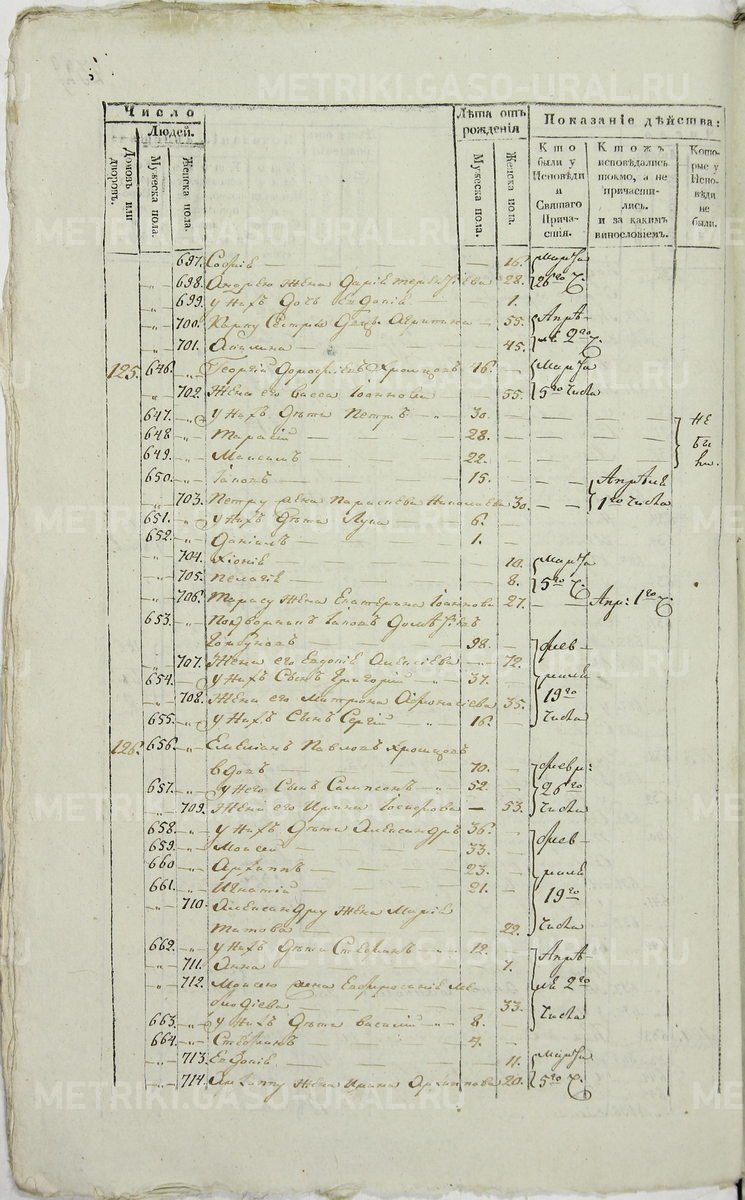 METRIKI.GASO-URAL.RU
Число
Людей.
Домовъ или дворовъ.
Мужеска пола.
Женска пола.
Лѣта отъ рожденія
Мужеска пола.
Женска пола.
Показаніе дѣйства:
Кто были у Исповѣди и Святаго Причастія.
Ктожъ исповѣдались токмо, а не причастились. и за какимъ винословіемъ.
Которые у Исповѣди не были.
697. Софія — 16. Марта
698. Андрею жена Дарія 28. 26го ч.
699. у нихъ дочь Евдокія 1.
700. Карпу сестра 55. Апрѣ-
701. Акилина — 45. ля 2го ч.
125. 646. Георгій Дорофѣевъ Хромцовъ 76. Марта
702. Жена его Васса Іоаннова 55. 5го числа
647. у нихъ дѣти Петръ 30. Не
648 Тарасій — 28. бы
649. Максимъ 22. ли.
650. Іаковъ — 15. Апрѣля
703. Петру жена Параскева Николаева 30. 1го числа
651. у нихъ дѣти Лука 6.
652. Даніилъ — 1.
704. Хіонія — 10. Марта
705. Пелагія — 8. 5го ч.
706. Тарасу жена Екатерина Іоаннова 27. Апр: 1го ч.
653. Подворникъ Іаковъ
98. Фев-
707. Жена его Евдокія Алексіева 72.
654. у нихъ сынъ Григорій 37. раля
708. Жена его Матрона Афонасіева 35. 19го
655. у нихъ сынъ Сергій 16. числа
126. 656. Емеліанъ Павловъ Хромцовъ
вдовъ 70. Февр:
657. у него сынъ Сампсонъ 52. 26го
709. Жена его Ирина 53. числа
658. у нихъ дѣти Александръ 36. Фев-
659. Моисей — 33.
660 Архиппъ — 23. раля
661. Игнатій — 21. 19го
710. Александру жена Марія
Титова — 22. числа
662. у нихъ дѣти Стефанъ 12. Апрѣ-
711. Анна — 7.
712. Моисею жена Евфросинія Ме-
ѳодіева — 33. ля 2го
663. у нихъ дѣти Василій 8. числа
664. Стефанъ 4.
713. Евдокія 11. Марта
714. Архиппу жена Ирина Архипова 20. 5го ч.